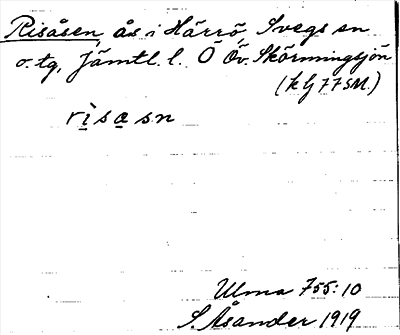 Risåsen, ås i Härrö, Svegs sn
o. tg, Jämtl. l. Ö Öv. Skörmingsjön
(klj 77 SM.)
rìsasn
Ulma 755:10
S. Åsander 1919